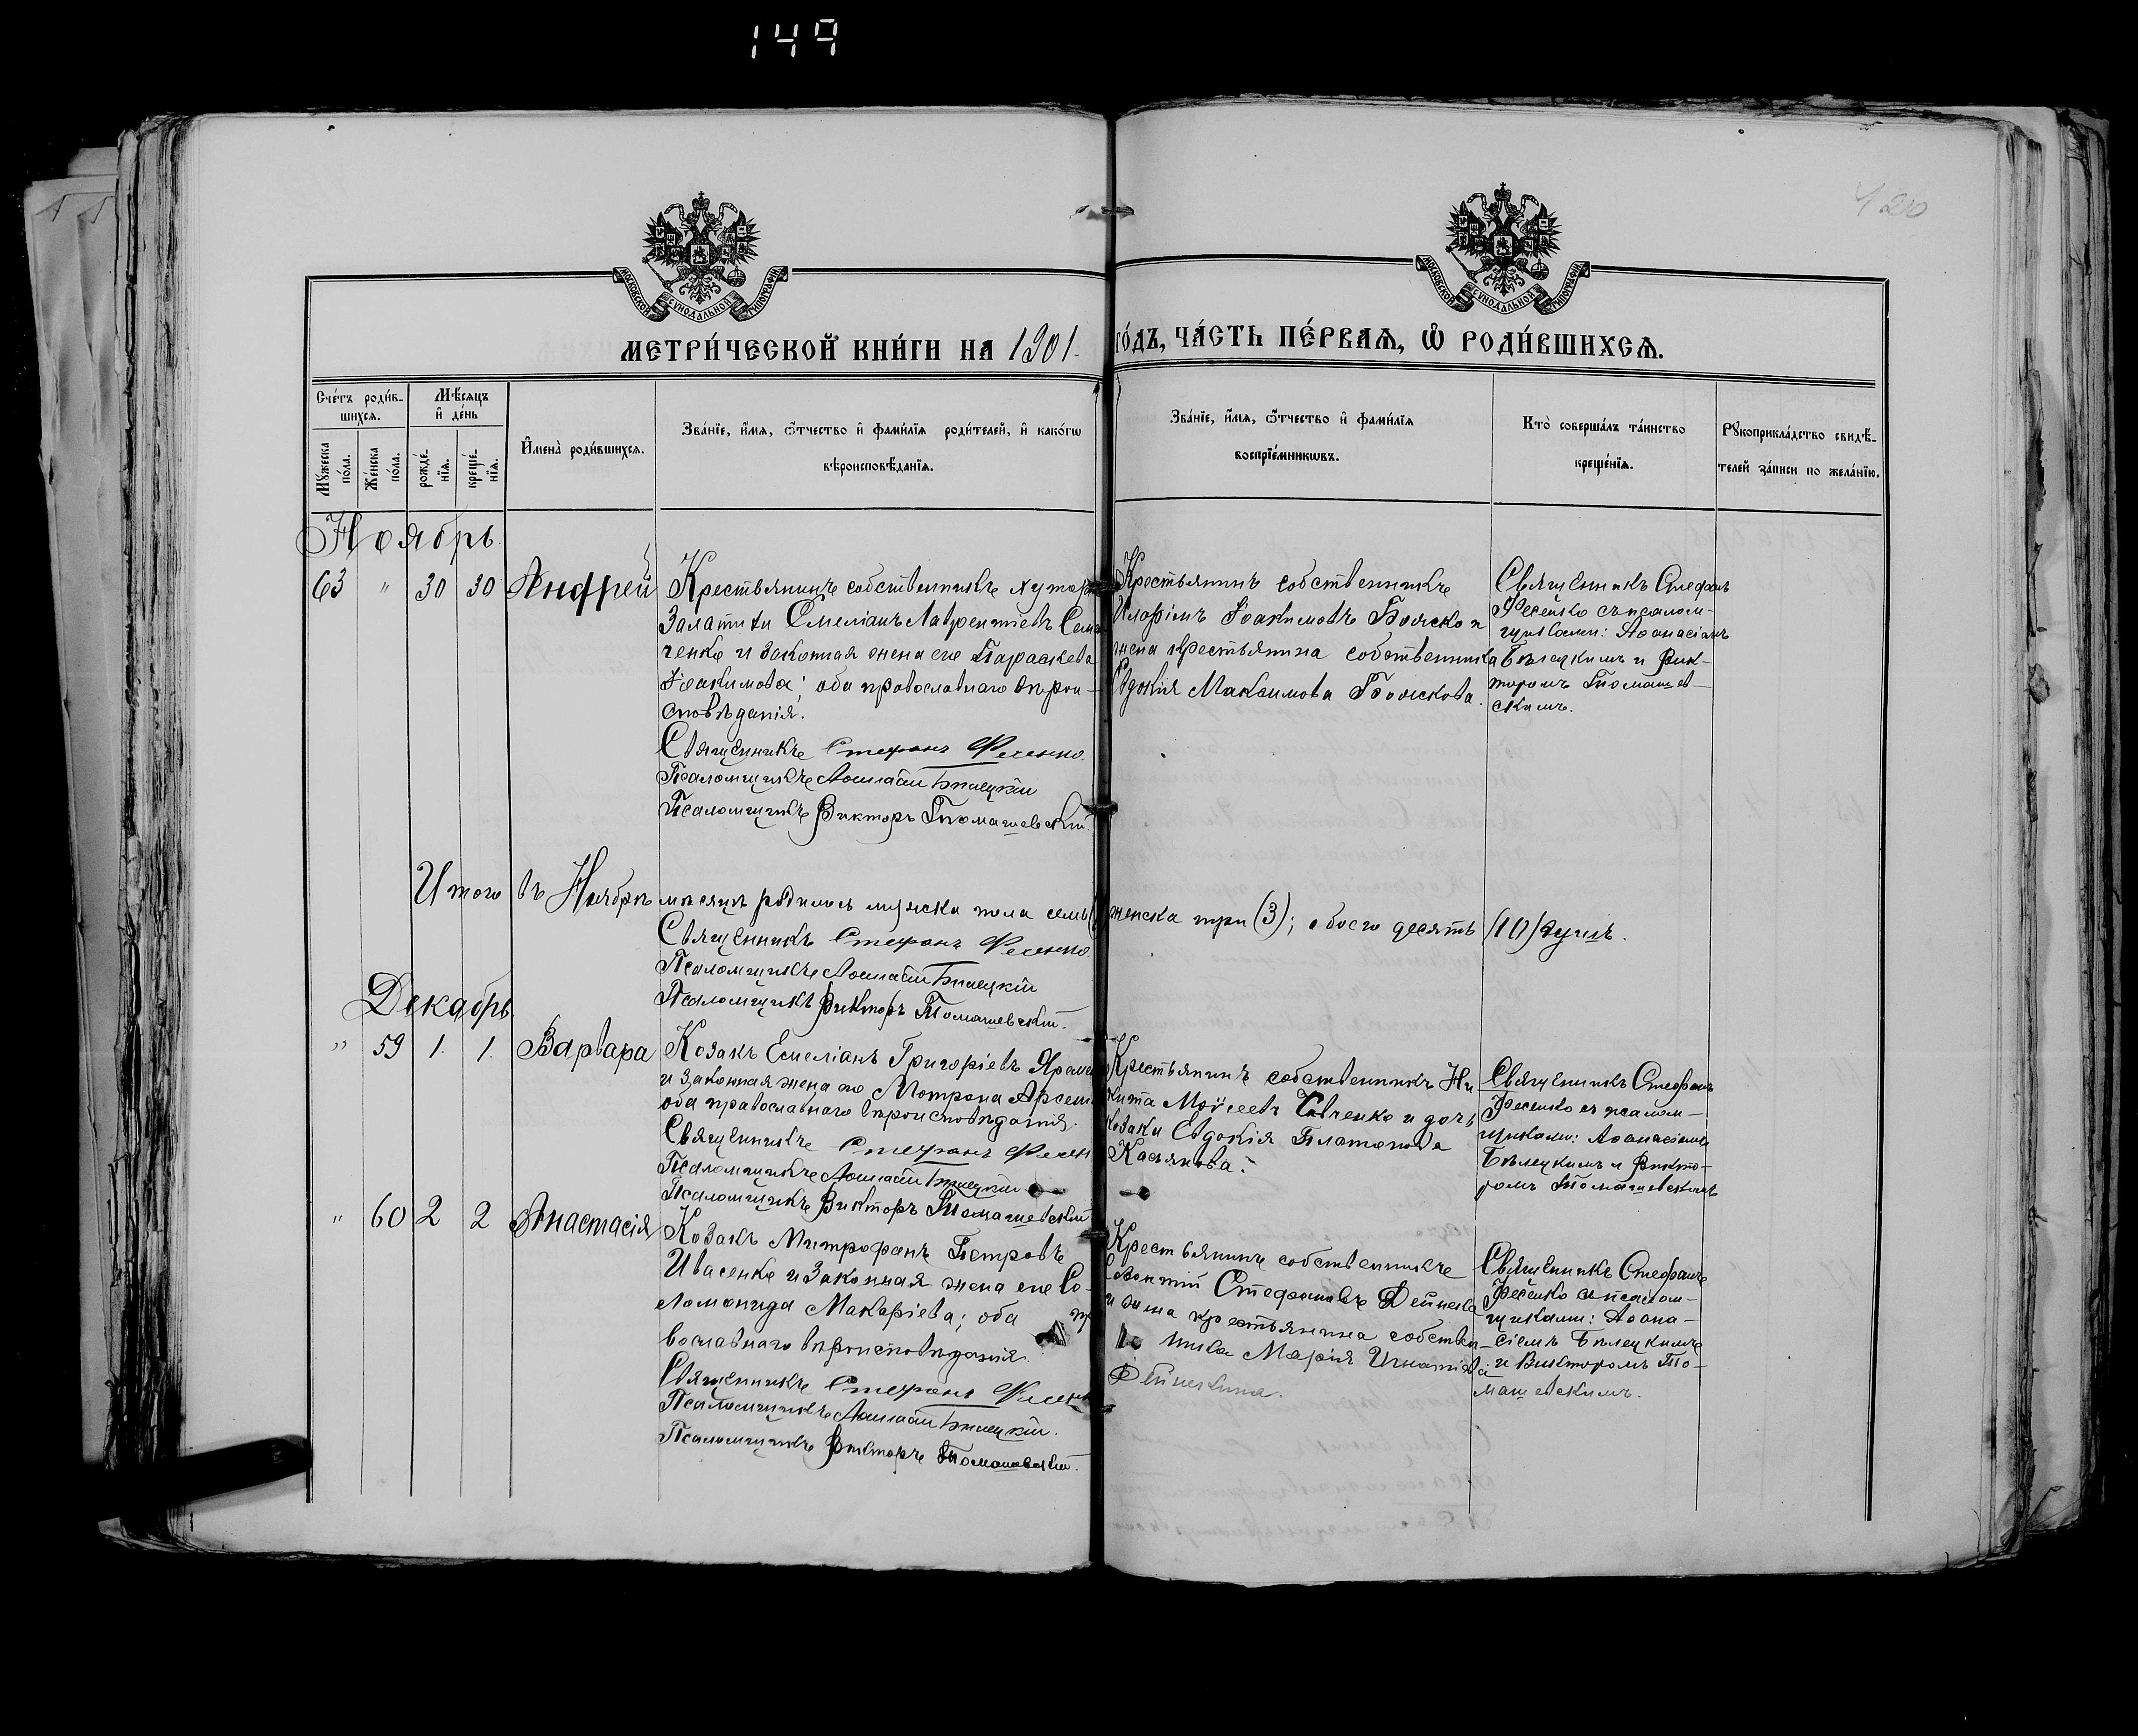 149
420
МОСКОВСКОЙ СѴНОДАЛЬНОЙ ТИПОГРАФІИ
МОСКОВСКОЙ СѴНОДАЛЬНОЙ ТИПОГРАФІИ
МЕТРИ́ЧЕСКОЙ КНИ́ГИ НА 1901 ГО́ДЪ, ЧА́СТЬ ПЕ́РВАѦ, Ѡ҆ РОДИ́ВШИХСѦ.
Сче́тъ роди́в-
шихсѧ.
Мѣ́сѧцъ
и҆ де́нь
Мꙋ́жеска
по́ла.
Же́нска
по́ла.
рожде́-
нїѧ.
креще́-
нїѧ.
И҆мена̀ роди́вшихсѧ.
Зва́нїе, и҆́мѧ, ѻ҆́тчество и҆ фами́лїѧ роди́телей, и҆ како́гѡ
вѣроисповѣ́данїѧ.
Зва́нїе, и҆́мѧ, ѻ҆́тчество и҆ фами́лїѧ
воспрїе́мникѡвъ.
Кто̀ соверша́лъ та́инство
креще́нїѧ.
Рꙋкоприкла́дство свидѣ́-
телей за́писи по жела́нїю.
Ноябрь
63 " 30 30 Андрей
Крестьянинъ собственникъ
Емеліанъ Лаврентіевъ
ченко и законная жена его Параскева
Іоакимова; оба православнаго вѣрои-
сповѣданія.
Священникъ Стефанъ Фесенко.
Псаломщикъ Бѣлецкій
Псаломщикъ Викторъ Томашевскій.
Крестьянинъ собственникъ
Іоакимовъ и
жена крестьянина собственника
Евдокія Максимова
Священникъ Стефанъ
Фесенко съ псалом-
щиками: Аѳанасіемъ
Бѣлецкимъ и Вик-
торомъ Томашев-
скимъ.
Итого въ Ноябрѣ мѣсяцѣ родилось мужска пола семь женска три (3); обоего десять (10) душъ.
Священникъ Стефанъ Фесенко
Псаломщикъ Бѣлецкій
Псаломщикъ Викторъ Томашевскій.
Декабрь.
" 59 1. 1. Варвара
Козакъ Емеліанъ Григоріевъ
и законная жена его Мотрона
оба православнаго вѣроисповѣданія.
Священникъ Стефанъ
Псаломщикъ Бѣлецкій
Псаломщикъ Викторъ Томашевскій
Крестьянинъ собственникъ Ни
кита Моѵсеевъ и дочь
козака Евдокія Платонова
Касьянова.
Священникъ Стефанъ
Фесенко съ псалом-
щиками: Аѳанасіемъ
Бѣлецкимъ и Викто-
ромъ Томашевскимъ
" 60 2 2 Анастасія
Козакъ Митрофанъ Петровъ
Ивасенко и законная жена его Со-
ломонида Макаріева; оба пра
вославнаго вѣроисповѣданія.
Священникъ Стефанъ
Псаломщикъ Бѣлецкій.
Псаломщикъ Викторъ Томашевскій.
Крестьянинъ собственникъ
Стефановъ Дейнека
и жена крестьянина собствен-
ника Марія Игнатіева
Дейнекина.
Священникъ Стефанъ
Фесенко съ псалом-
щиками: Аѳана-
сіемъ Бѣлецкимъ
и Викторомъ То-
машевскимъ.